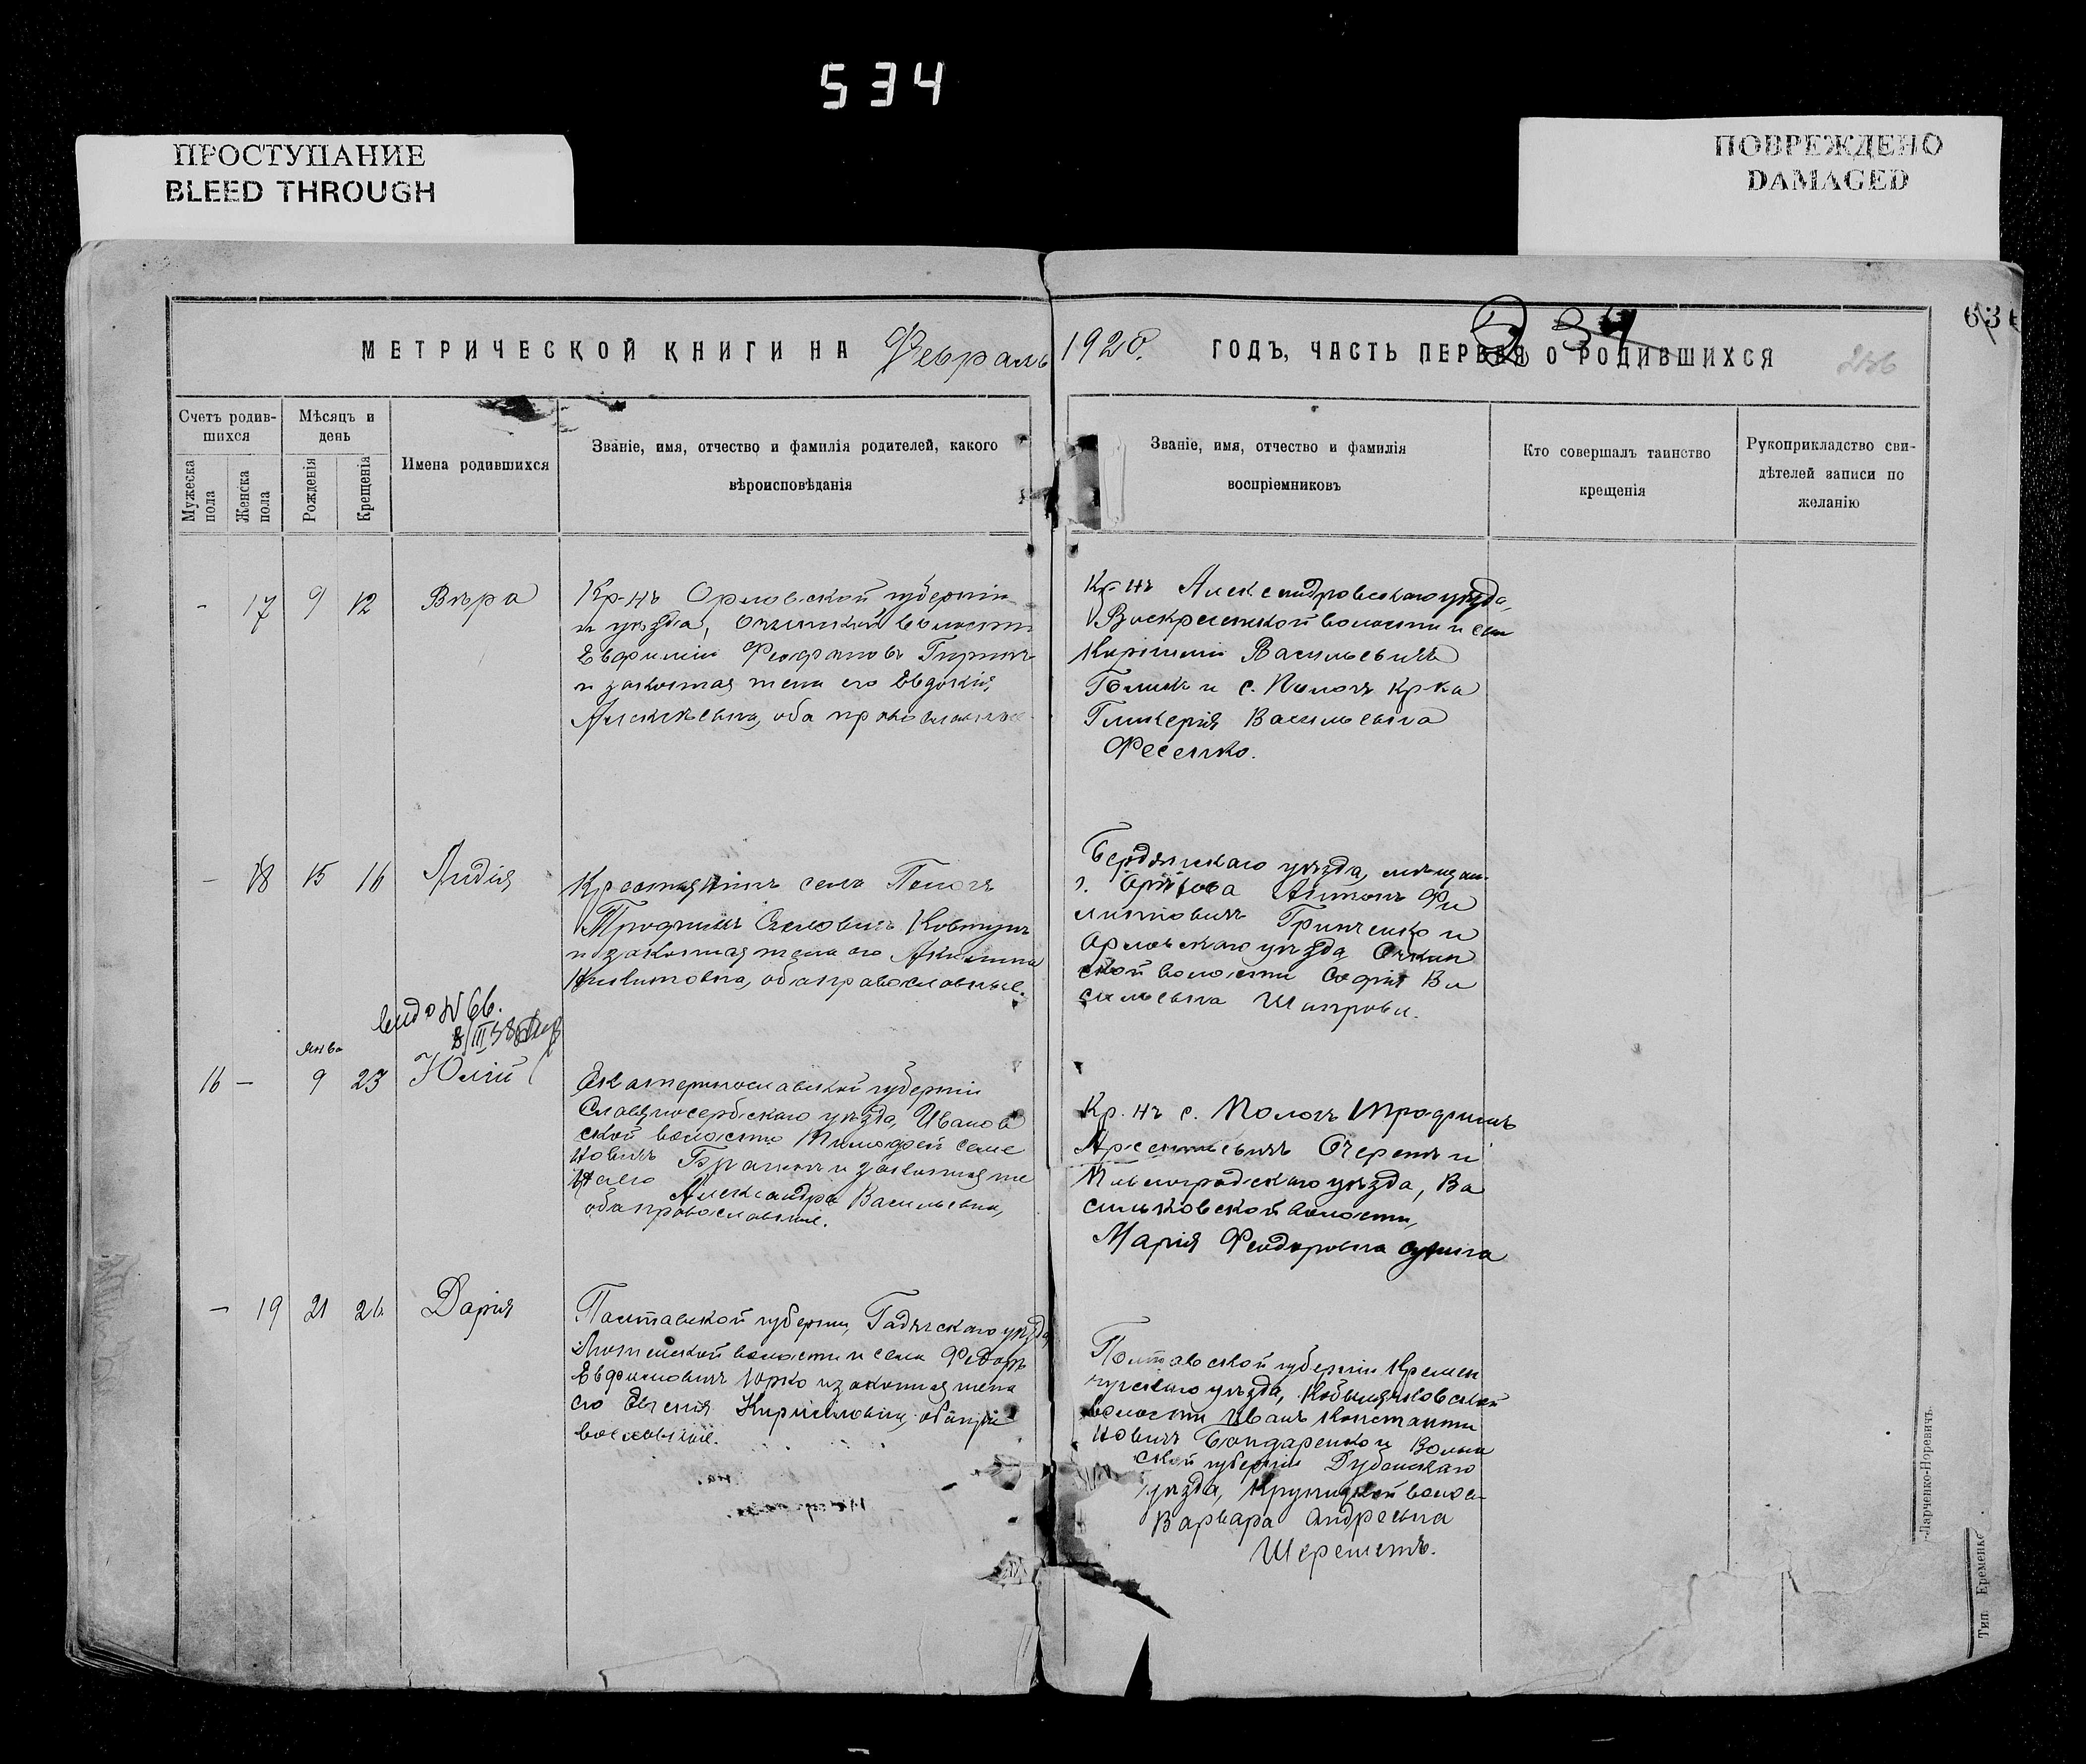 534
ПРОСТУПАНИЕ
BLEED THROUGH
ПОВРЕЖДЕНО
DAMAGED
534
МЕТРИЧЕСКОЙ КНИГИ НА Февраль 1920. ГОДЪ, ЧАСТЬ ПЕРВАЯ О РОДИВШИХСЯ
Счетъ родив-
шихся
Мужеска
пола
Женска
пола
Мѣсяцъ и
день
Рожденія
Крещенія
Имена родившихся
Званіе, имя, отчество и фамилія родителей, какого
вѣроисповѣданія
Званіе, имя, отчество и фамилія
воспріемниковъ
Кто совершалъ таинство
крещенія
Рукоприкладство сви-
дѣтелей записи по
желанію
- 17 9 12 Вѣра
Кр-нъ Орловской губерніи
и уѣзда, волости
Евфимій
и законная жена его Евдокія
Алексѣевна, оба православные
Кр-нъ Александровскаго уѣзда,
Воскресенской волости и села
Васильевичъ
и с. Пологъ кр-ка
Гликерія Васильевна
Фесенко.
- 18 15 16 Лидія
Крестьянинъ села Пологъ
Трофимъ Ковтунъ
и законная жена его Акилина
Никитовна, оба православные.
Бердянскаго уѣзда, мѣщан.
г. Орѣхова Антонъ Фи
липповичъ Гринченко и
Орловскаго уѣзда
ской волости Софія Ва
сильевна
видо N 66.
8/III 38
янва
16 - 9 23 Юлій
Екатеринославской губерніи
Славяносербскаго уѣзда, Иванов
ской волости Тимофей Семе
новичъ и законная же
на его Александра Васильевна,
оба православные.
Кр. нъ с. Пологъ Трофимъ
Арсентьевичъ и
Павлоградскаго уѣзда, Ва
сильковской волости,
Марія Феодоровна
- 19 21 26 Дарія
Полтавской губерніи, Гадячскаго уѣзда
волости и села Федоръ
Евфимовичъ Юрко и законная жена
его Евгенія Кирилловна, оба пра
вославные.
Полтавской губерніи Кремен
чугскаго уѣзда,
волости Иванъ Константи
новичъ Бондаренко и Волын
ской губерніи Дубенскаго
уѣзда, волос-
Варвара Андреевна
Шереметъ.
Тип. Еременко